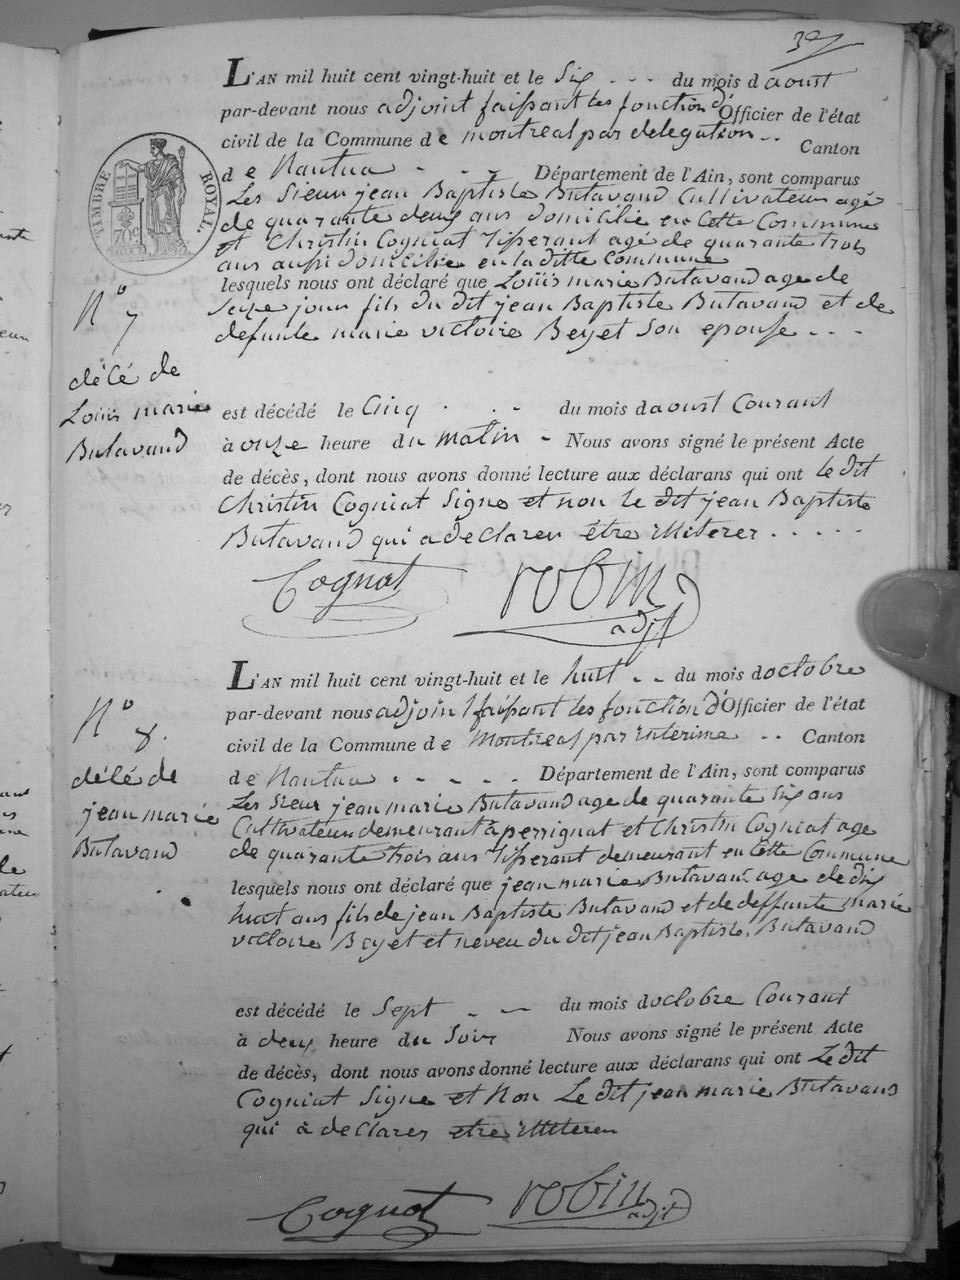 3e
L'AN mil huit cent vingt-huit et le Six - - - du mois daoust
par-devant nous adjoint faissant les fonction d'Officier de l'état
civil de la Commune de montreal par delegation - - Canton
de Nantua - - - Département de l'Ain, sont comparus
TIMBRE ROYAL.
Les Sieur jean Baptiste Butavand Cultivateur agé
de quarante deux ans domicilié en Cette Commune
et Christin Cogniat tisserant agé de quarante trois
ans aussi domicilié en la ditte commune
lesquels nous ont déclaré que Loüis marie Butavand age de
seize jour fils du dit jean Baptiste Butavand et de
defunte marie victoire Beyet son epouse - - -
N° 7
décé de
Loüis marie
Butavand
est décédé le Cinq - - - du mois daoust Courant
à onze heure du matin - Nous avons signé le présent Acte
de décès, dont nous avons donné lecture aux déclarans qui ont le dit
Christin Cogniat Signe et non le dit jean Baptiste
Butavand qui a declarer être illiterer - - - -
Cognat robin
adjt
L'AN mil huit cent vingt-huit et le huit - - du mois doctobre
par-devant nous adjoint faissant les fonction d'Officier de l'état
civil de la Commune de Montreal par interime - - Canton
de Nantua - - - - - Département de l'Ain, sont comparus
N° 8.
décé de
jean marie
Butavand
Les Sieur jean marie Butavand age de quarante Six ans
Cultivateur demeurant à perrignat et Christin Cogniat age
de quarante trois ans tisserant demeurant en Cette Commune
lesquels nous ont déclaré que jean marie Butavant age de dix
huit ans fils de jean Baptiste Butavand et de deffunte marie
victoire Beyet et neveu du dit jean Baptiste Butavand
est décédé le Sept - - du mois doctobre Courant
à deux heure du Soir Nous avons signé le présent Acte
de décès, dont nous avons donné lecture aux déclarans qui ont Le dit
Cogniat Signe et Non Le dit jean marie Butavand
qui à declarer etre illiterer
Cognat robin
adjt